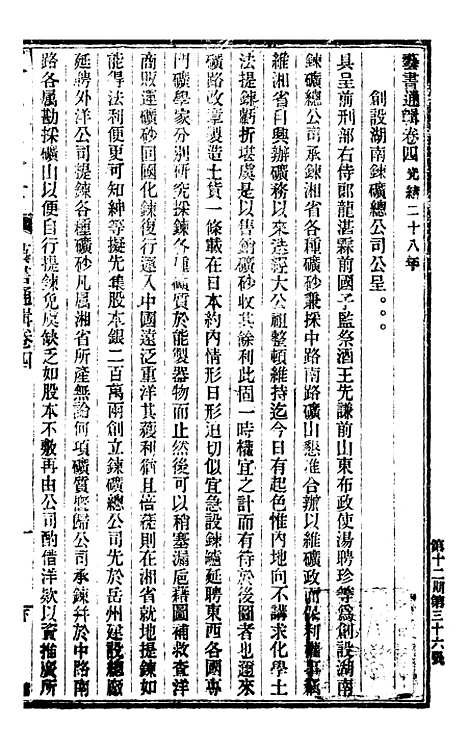 藝書通輯卷四 光緒二十八年
創設湖南鍊礦總公司公呈。。。
具呈前刑部右侍郎龍湛霖前國子監祭酒王先謙前山東布政使湯聘珍等爲創設湖南
鍊礦總公司承鍊湘省各種礦砂兼採中路南路礦山懇准合辦以維礦政而保利權事竊
維湘省自興辦礦務以來迭經大公祖整頓維持迄今日有起色惟內地向不講求化學土
法提鍊虧折堪虞是以售銷礦砂收其餘利此固一時權宜之計而有待於後圖者也邇來
礦路改章製造土貨一條載在日本約內情形日形迫切似宜急設鍊爐延聘東西各國專
門礦學家分別研究採鍊各種礦質於能製器物而止然後可以稍塞漏巵藉圖補救查洋
商販運礦砂回國化鍊復行運入中國遠泛重洋其獲利猶且倍蓰則在湘省就地提鍊如
能得法利便更可知紳等擬先集股本銀二百萬兩創立鍊礦總公司先於岳州建設總廠
延聘外洋公司提鍊各種礦砂凡屬湘省所產無論何項礦質應歸公司承鍊幷於中路南
路各属勘採礦山以便自行提鍊免虞缺乏如股本不敷再由公司酌借洋欵以資推廣所
藝書通輯卷四
一
第十二期第三十六號